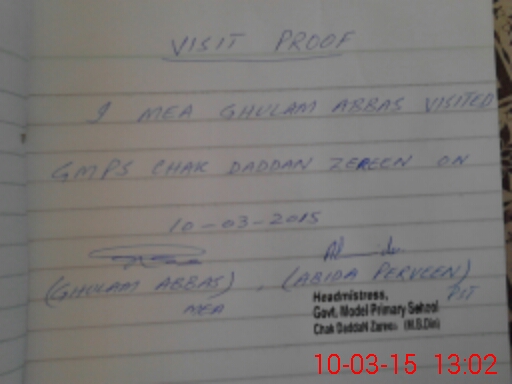 VISIT PROOF
I MEA GHULAM ABBAS VISITED
GMPS CHAK DADDAN ZEREEN ON
10-03-2015
(GHULAM ABBAS), (ABIDA PERVEEN)
MEA PST
Headmistress,
Govt. Model Primary School
Chak DaddaN Zareen (M.B.Din)
10-03-15 13:02